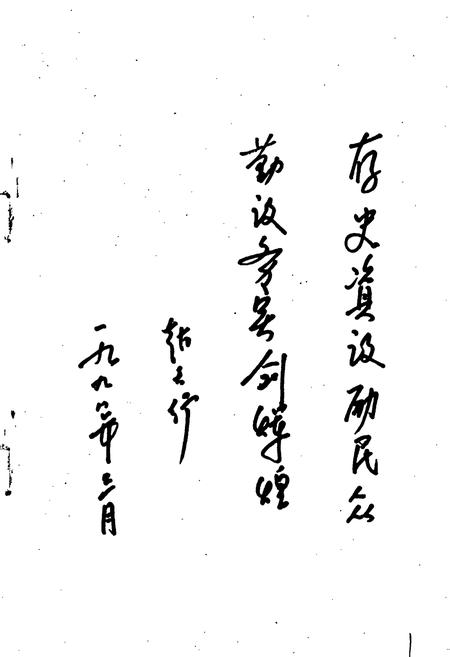 存史資政励民众
勤政务实创辉煌
赵
一九九年月